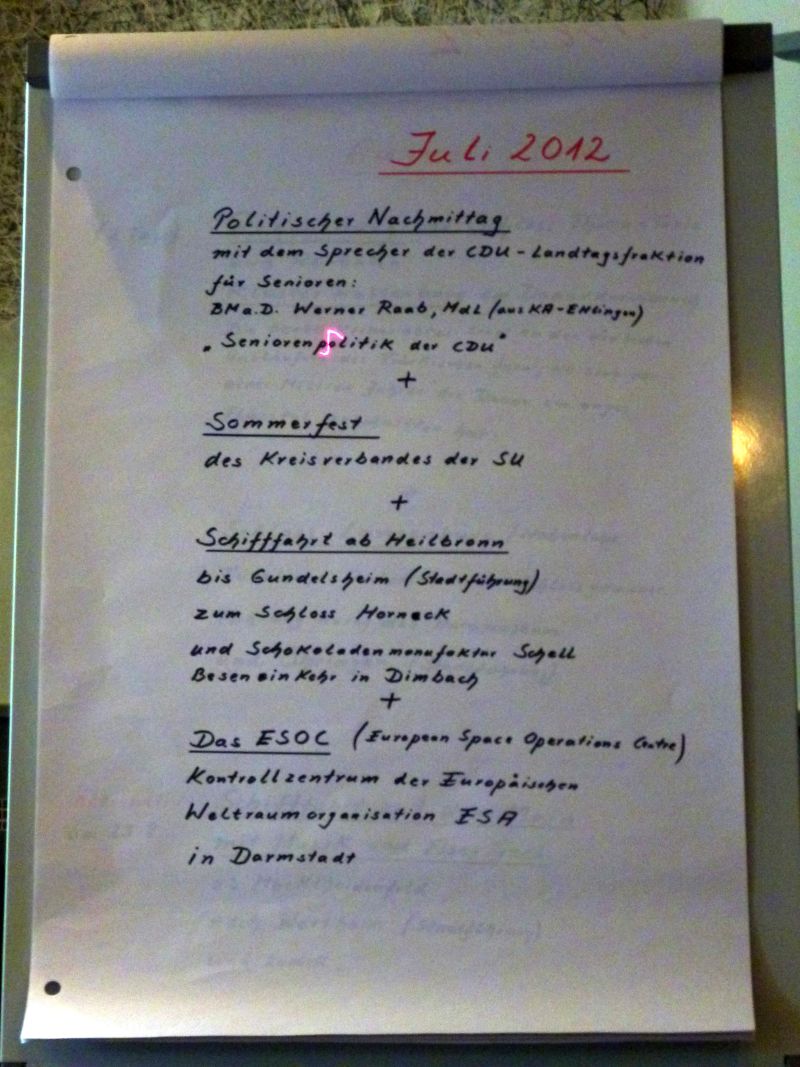 Juli 2012
Politischer Nachmittag
mit dem Sprecher der CDU-Landtagsfraktion
für Senioren:
BMa.D. Werner Raab, MdL (aus KA-Ettlingen)
„Seniorenpolitik der CDU"
+
Sommerfest
des Kreisverbandes der SU
+
Schifffahrt ab Heilbronn
bis Gundelsheim (Stadtführung)
zum Schloss Horneck
und Schokoladenmanufaktur Schell
Beseneinkehr in Dimbach
+
Das ESOC (European Space Operations Centre)
Kontrollzentrum der Europäischen
Weltraumorganisation ESA
in Darmstadt